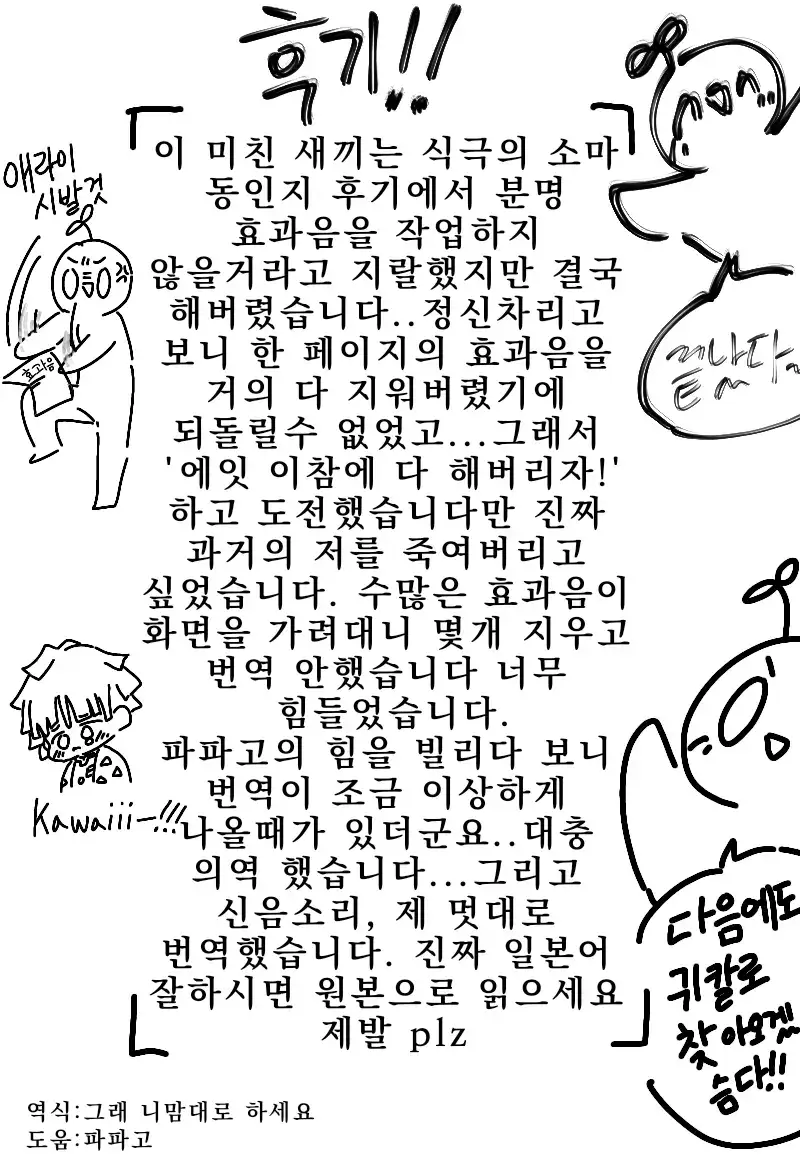 후기!!
애라이
시발것
효과음
끝났다..
이 미친 새끼는 식극의 소마
동인지 후기에서 분명
효과음을 작업하지
않을거라고 지랄했지만 결국
해버렸습니다..정신차리고
보니 한 페이지의 효과음을
거의 다 지워버렸기에
되돌릴수 없었고...그래서
'에잇 이참에 다 해버리자!'
하고 도전했습니다만 진짜
과거의 저를 죽여버리고
싶었습니다. 수많은 효과음이
화면을 가려대니 몇개 지우고
번역 안했습니다 너무
힘들었습니다.
파파고의 힘을 빌리다 보니
번역이 조금 이상하게
나올때가 있더군요..대충
의역 했습니다...그리고
신음소리, 제 멋대로
번역했습니다. 진짜 일본어
잘하시면 원본으로 읽으세요
제발 plz
Kawaiii~!!!
다음에도
귀칼로
찾아오겠
슴다!!
역식:그래 니맘대로 하세요
도움:파파고